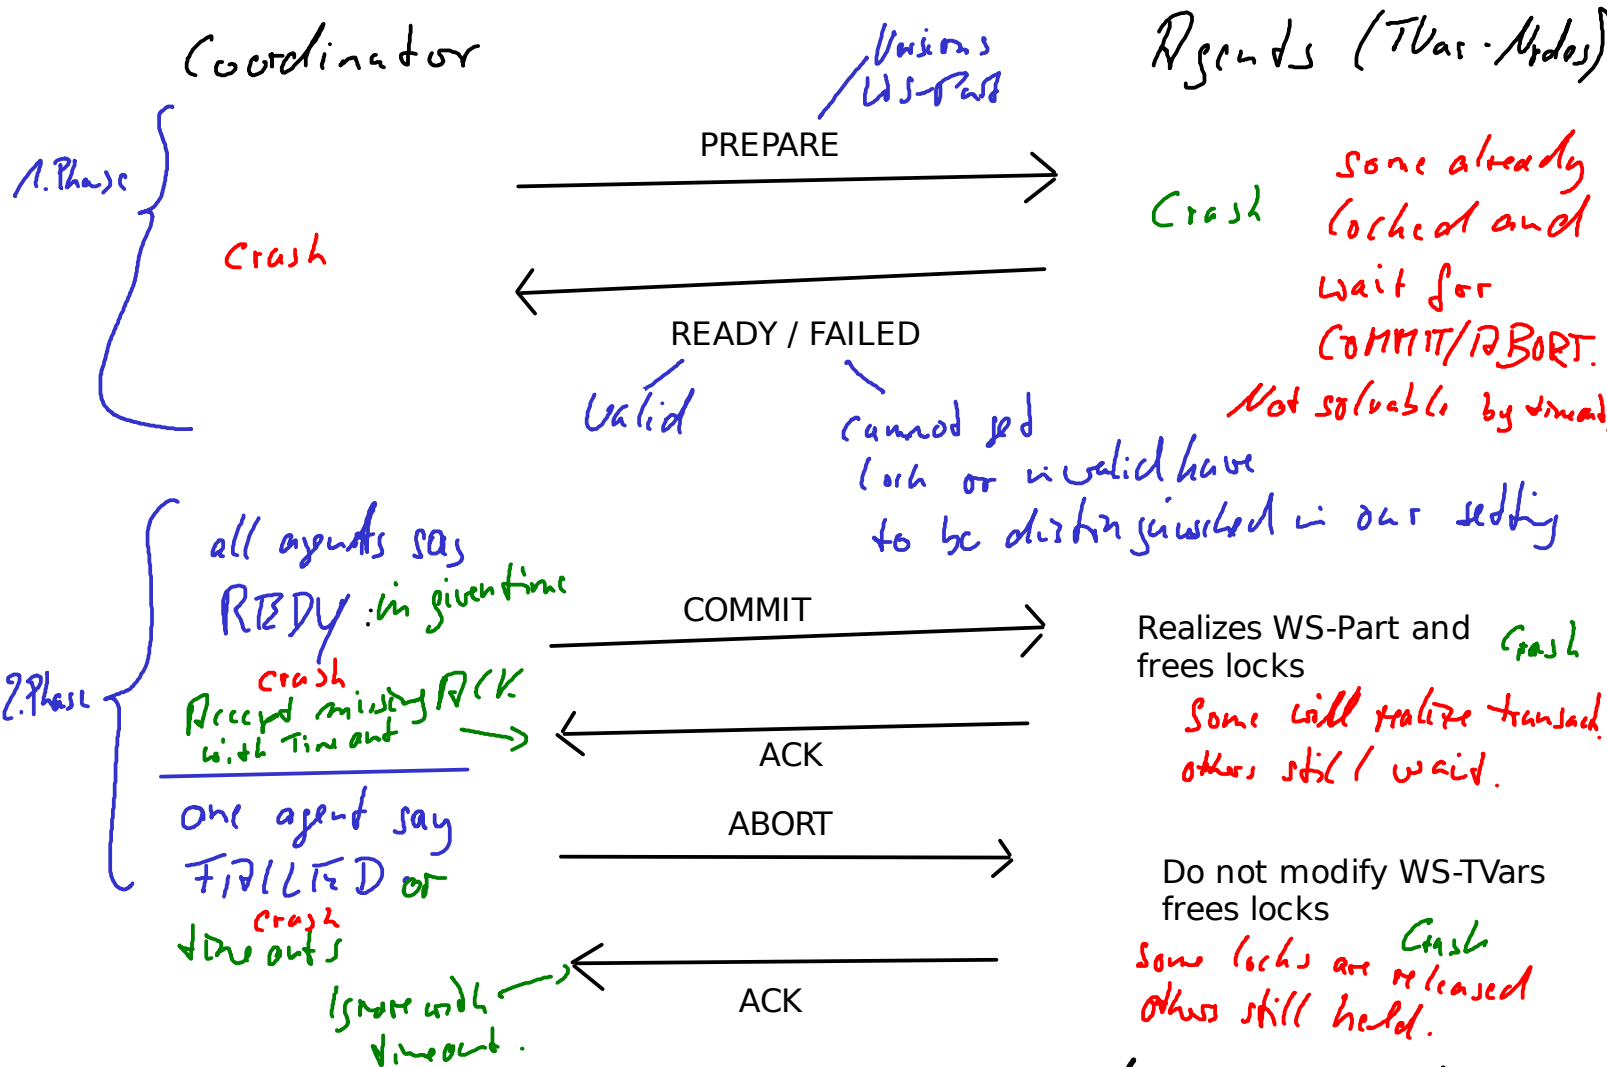 Coordinator
Agents (TVar-Nodes)
Versions
WS-Part
1. Phase
PREPARE
Crash
Crash
some already
locked and
wait for
COMMIT/ABORT.
Not solvable by timeout
READY / FAILED
Valid
cannot set
lock or invalid have
to be distinguished in our setting
2. Phase
all agents say
REDY : in given time
crash
Accept missing ACK
with Timeout
COMMIT
ACK
Realizes WS-Part and
frees locks
Crash
Some will realize transact.
others still wait.
one agent say
FAILED or
crash
timeouts
Ignore with
timeout.
ABORT
ACK
Do not modify WS-TVars
frees locks
Crash
some locks are released
others still held.